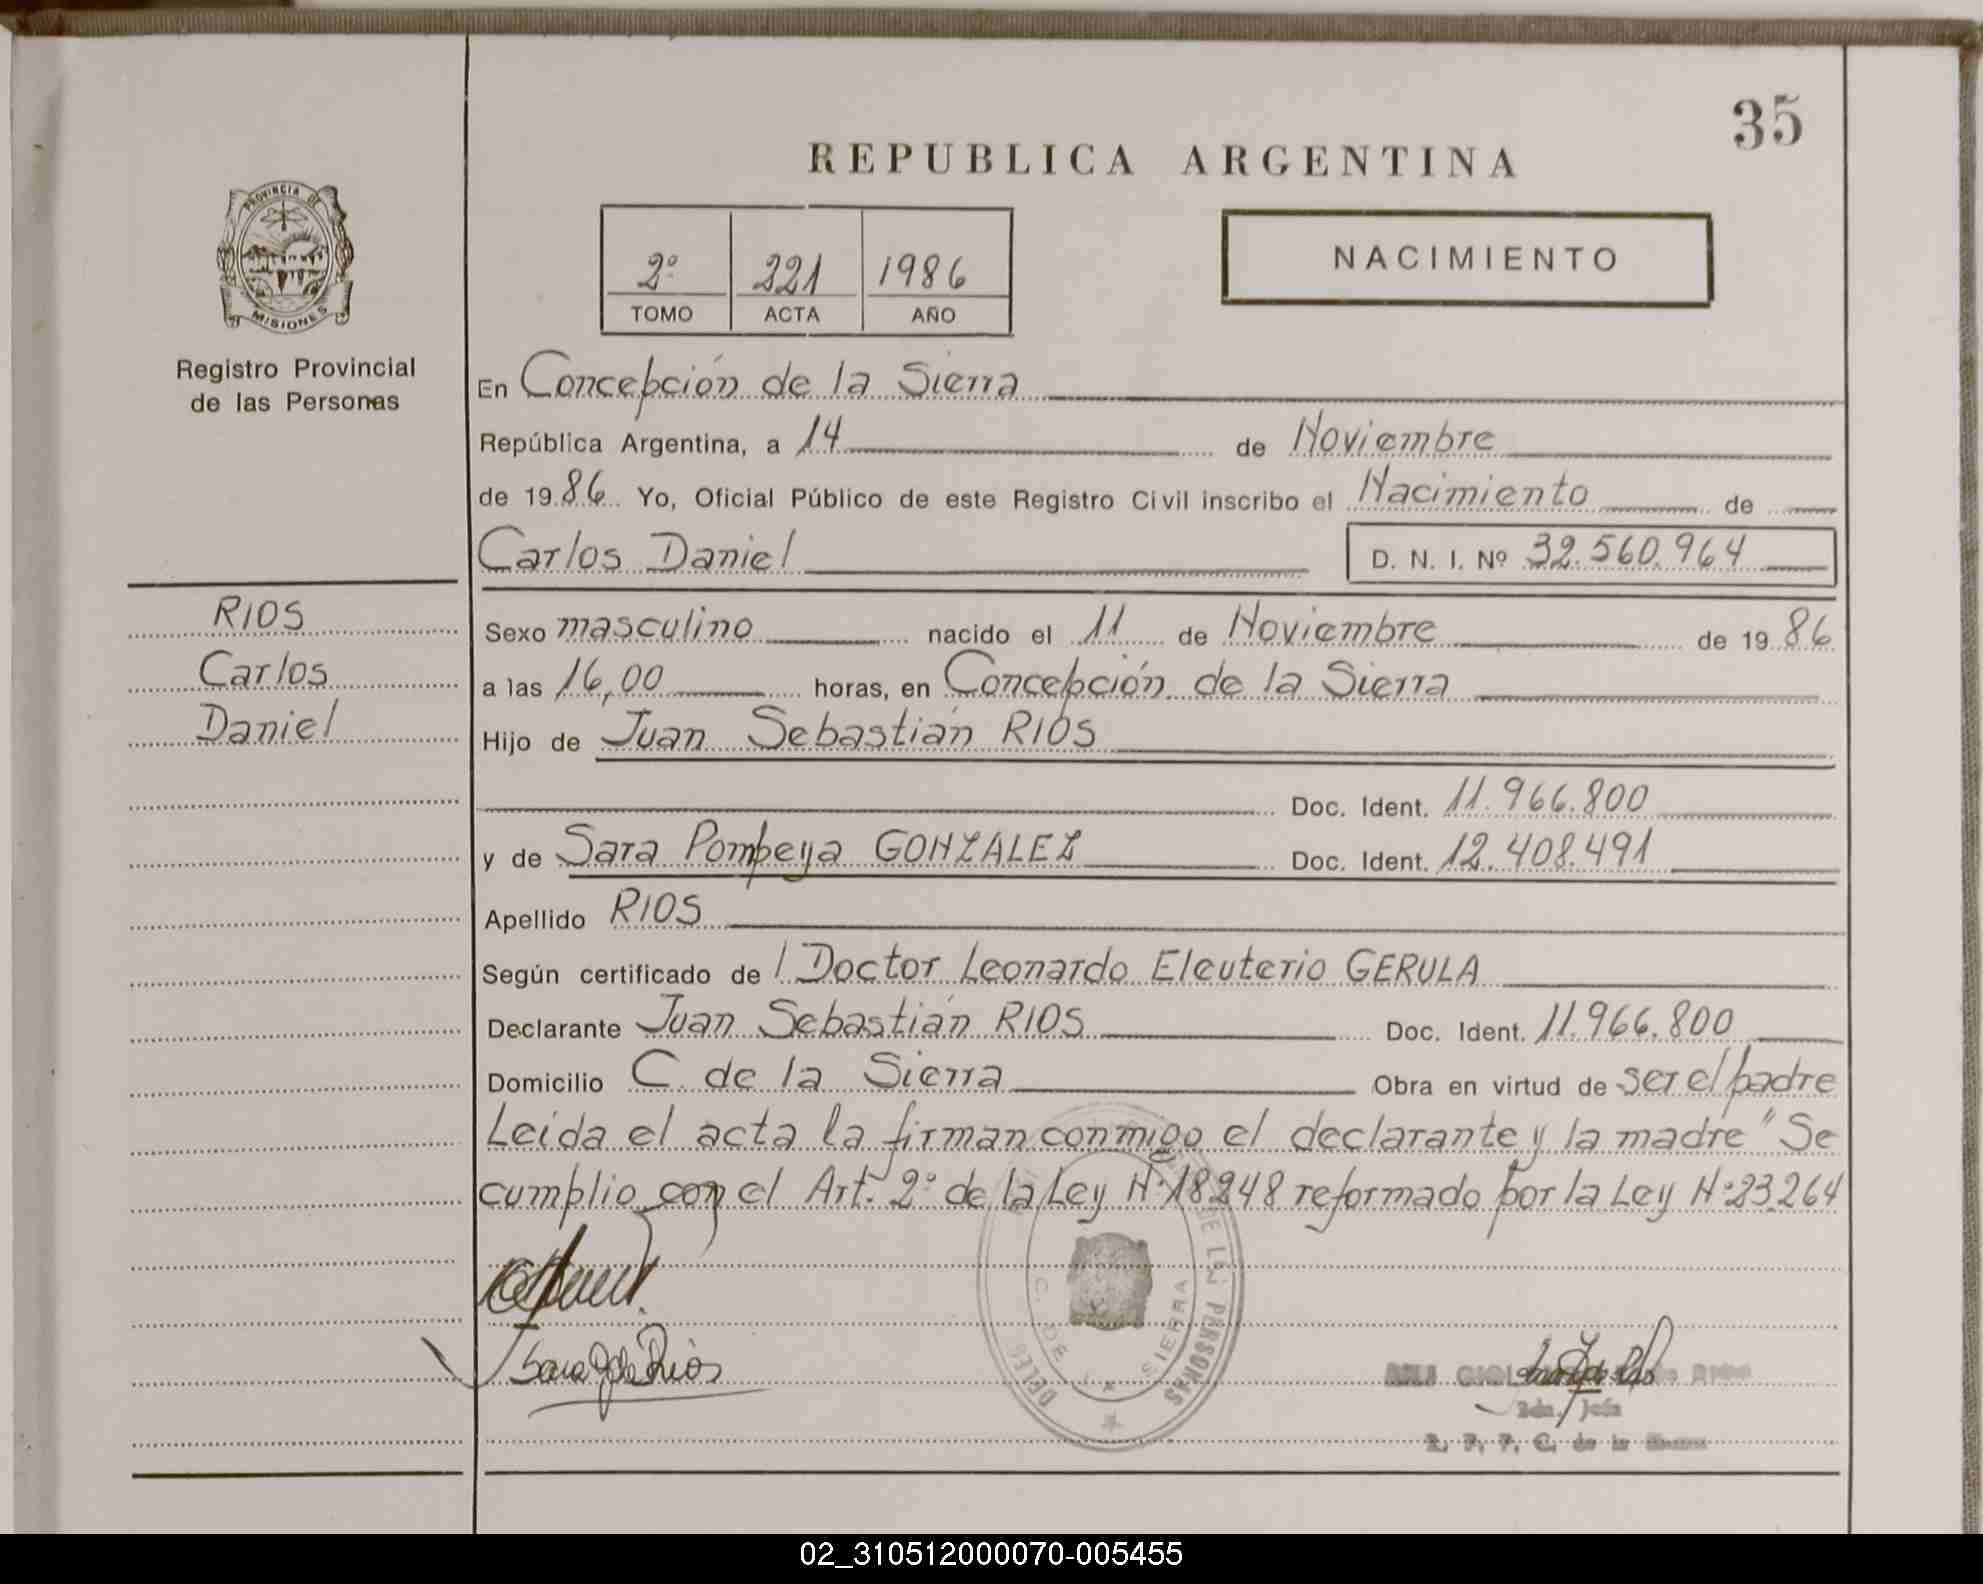 35
REPUBLICA ARGENTINA
PROVINCIA DE
MISIONES
Registro Provincial
de las Personas
2º 221 1986
TOMO ACTA AÑO
NACIMIENTO
En Concepción de la Sierra
República Argentina, a 14 de Noviembre
de 1986 Yo, Oficial Público de este Registro Civil inscribo el Nacimiento de
Carlos Daniel D. N. I. Nº 32.560.964
RIOS
Carlos
Daniel
Sexo masculino nacido el 11 de Noviembre de 1986
a las 16,00 horas, en Concepción de la Sierra
Hijo de Juan Sebastián RIOS
Doc. Ident. 11.966.800
y de Sara Pompeya GONZALEZ Doc. Ident. 12.408.491
Apellido RIOS
Según certificado de l Doctor Leonardo Eleuterio GERULA
Declarante Juan Sebastián RIOS Doc. Ident. 11.966.800
Domicilio C. de la Sierra Obra en virtud de ser el padre
Leida el acta la firman conmigo el declarante y la madre "Se
cumplio con el Art. 2º de la Ley Nº 18248 reformado por la Ley Nº 23.264
DE LAS PERSONAS
C. DE SIERRA
DELEG
Sara G de Rios
C. de la
02_310512000070-005455